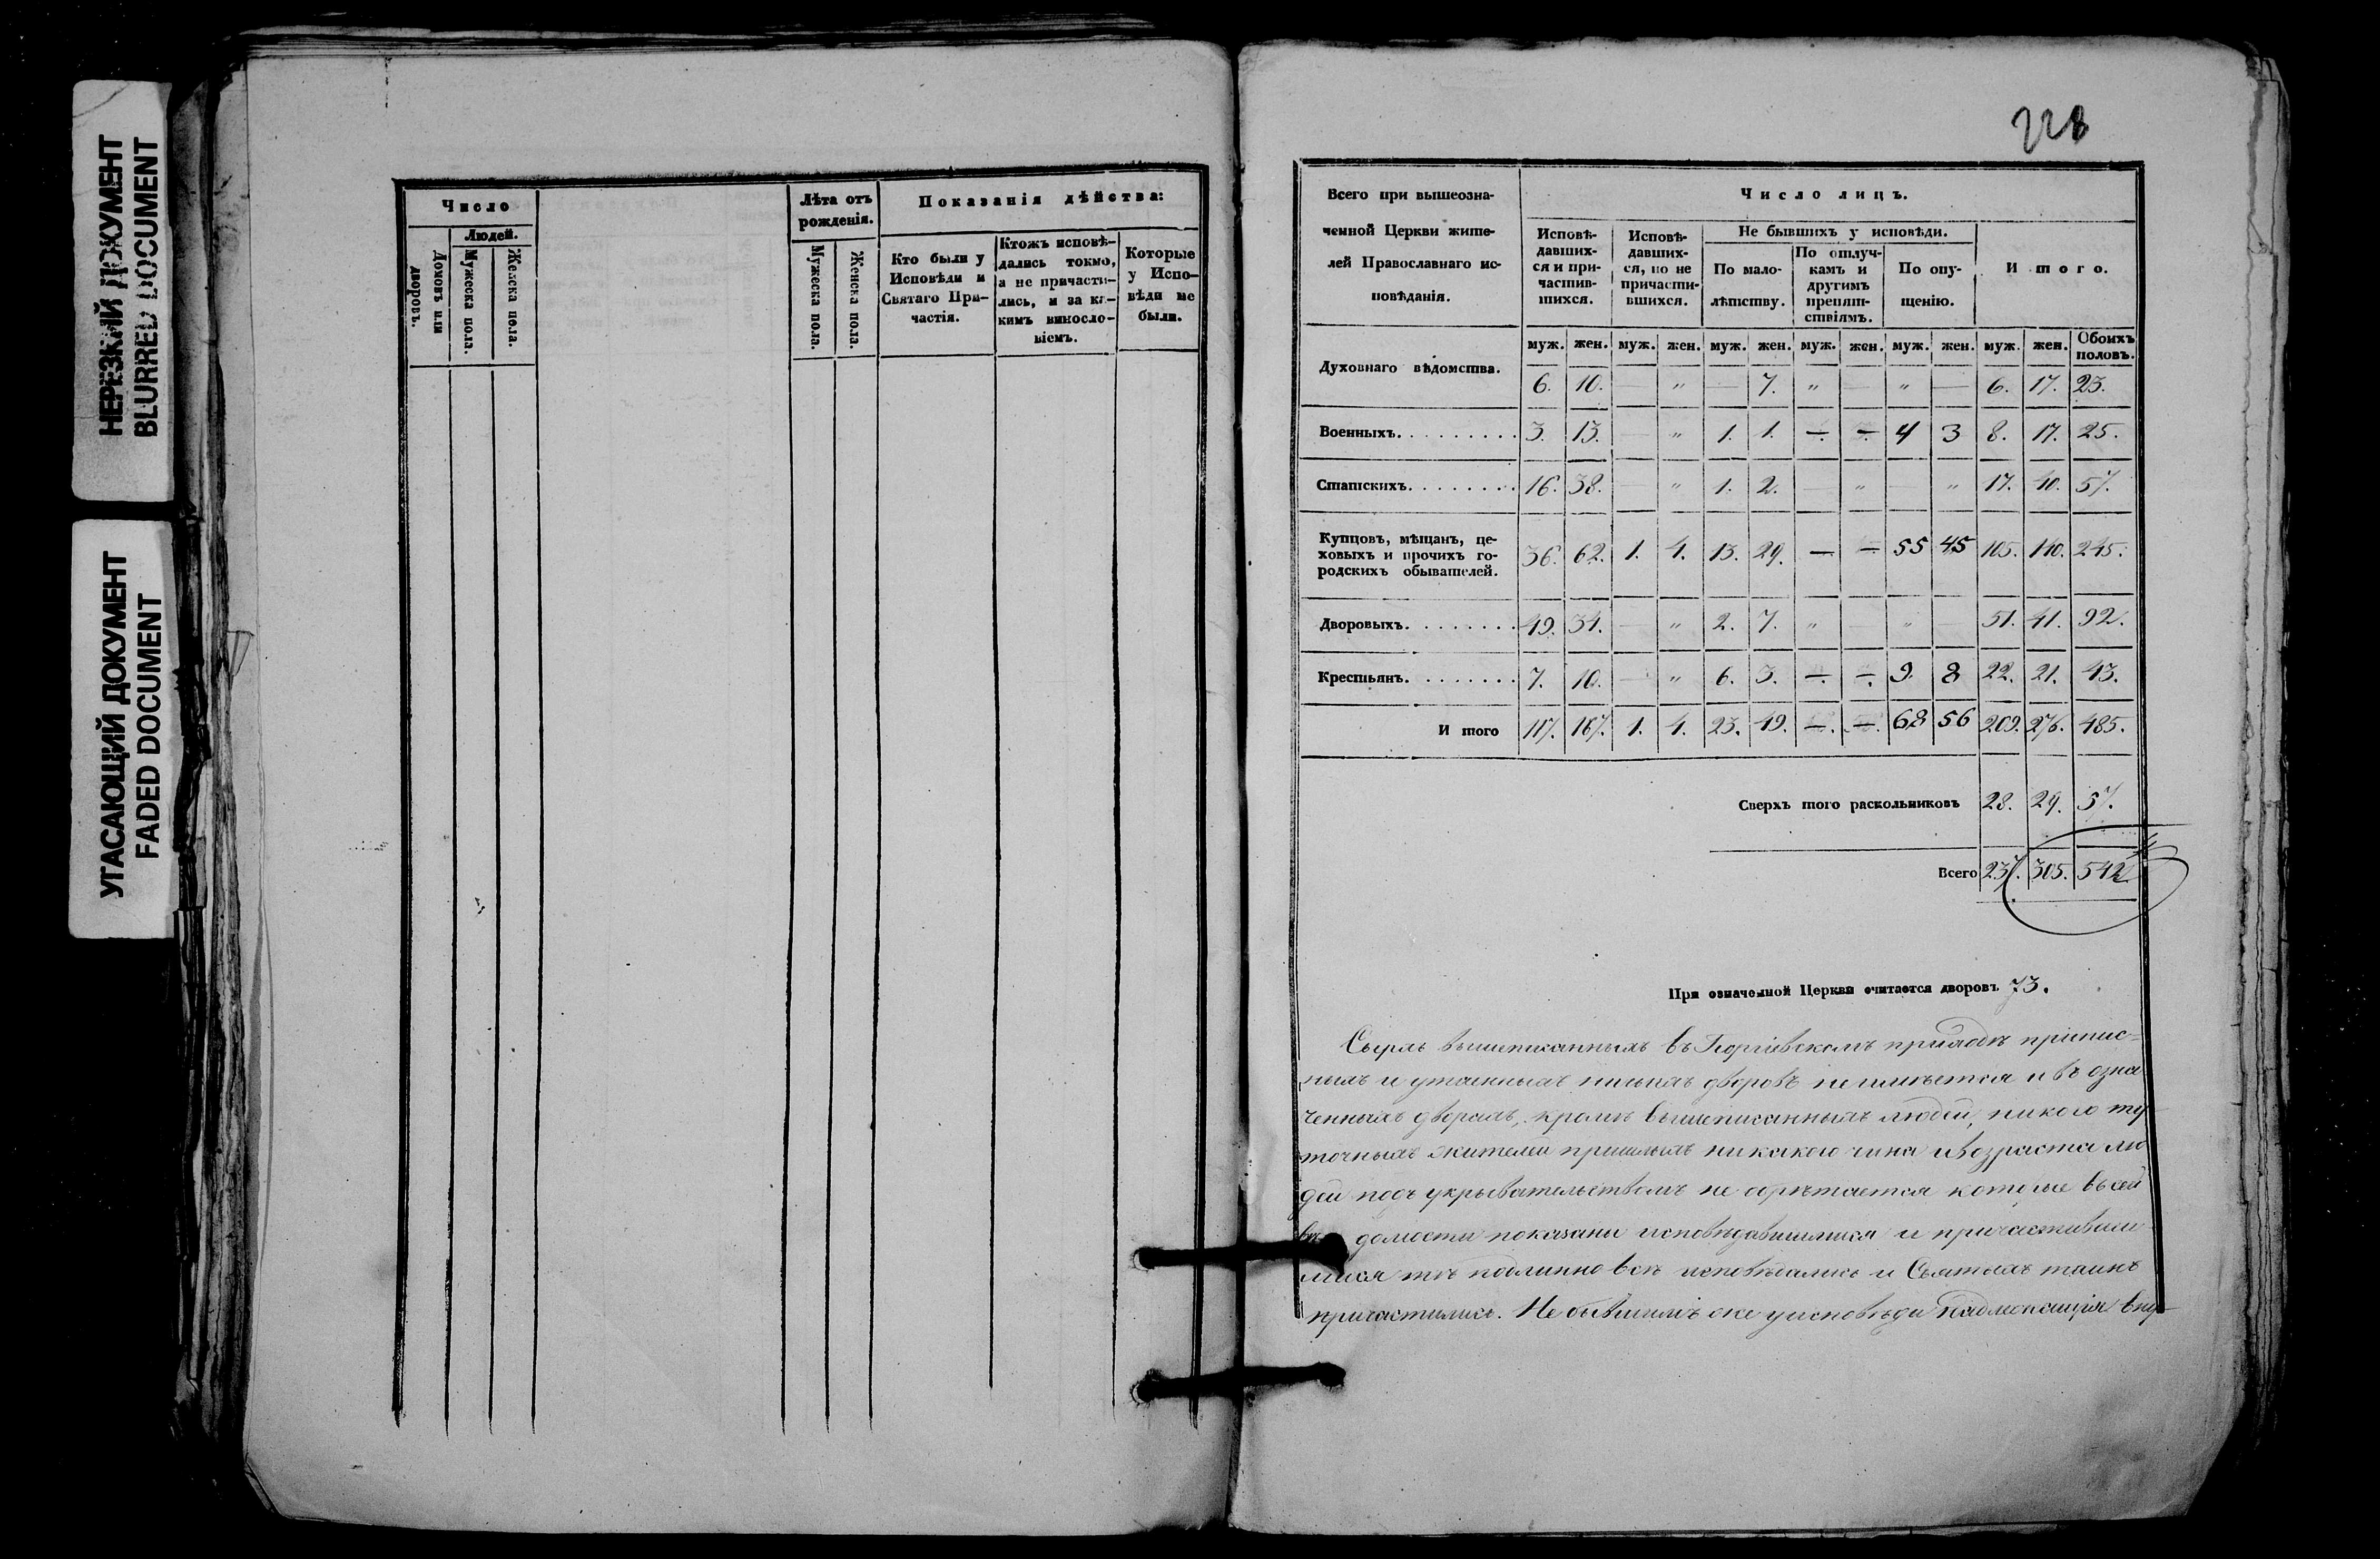 НЕРЕЗКИЙ ДОКУМЕНТ
BLURRED DOCUMENT
УГАСАЮЩИЙ ДОКУМЕНТ
FADED DOCUMENT
Число
Домовъ или дворовъ.
Людей.
Мужеска пола.
Женска пола.
Лѣта отъ рожденія.
Мужеска пола.
Женска пола.
Показанія дѣйства:
Кто были у
Исповѣди и
Святаго При-
частія.
Ктожъ исповѣ-
дались токмо,
а не причасти-
лись, и за ка-
кимъ винносло-
віемъ.
Которые
у Испо-
вѣди не
были.
228
Всего при вышеозна-
ченной Церкви жите-
лей Православнаго ис-
повѣданія.
Число лицъ.
Исповѣ-
давших-
ся и при-
частив-
шихся.
Исповѣ-
давших-
ся, но не
причасти-
вшихся.
Не бывшихъ у исповѣди.
По мало-
лѣтству.
По отлуч-
камъ и
другимъ
препят-
ствіямъ.
По опу-
щенію.
Итого.
муж. жен. муж. жен. муж. жен. муж. жен. муж. жен. муж. жен. Обоихъ половъ.
Духовнаго вѣдомства. 6. 10. — „ — 7. „ — „ — 6. 17. 23.
Военныхъ. 3. 13. — „ 1. 1. — — 4 3 8. 17. 25.
Статскихъ. 16. 38. — „ 1. 2. — „ — „ 17. 40. 57.
Купцовъ, мѣщанъ, це-
ховыхъ и прочихъ го-
родскихъ обывателей. 36. 62. 1. 4. 13. 29. — — 55 45 105. 140. 245.
Дворовыхъ. 49. 34. — „ 2. 7. „ — „ — 51. 41. 92.
Крестьянъ. 7. 10. — „ 6. 3. — — 9. 8 22. 21. 43.
И того 117. 167. 1. 4. 23. 49. — — 68 56 209. 276. 485.
Сверхъ того раскольниковъ 28. 29. 57.
Всего 237. 305. 542.
При означенной Церкви считается дворовъ 73.
Сверхъ вышеписанныхъ въ приходѣ припис-
ныхъ и утаенныхъ никакихъ дворовъ не имѣется и въ озна
ченныхъ дворахъ, кромѣ вышеписанныхъ людей, никого ту
точныхъ жителей пришлыхъ никакого чина и возраста лю
дей подъ укрывательствомъ не обрѣтается которые въ сей
вѣ домости показаны исповѣдавшимися и причастивши
мися тѣ подлинно всѣ исповѣдались и Святыхъ таинъ
причастились. Не бывшимъ же у исповѣди надлежащія вну-